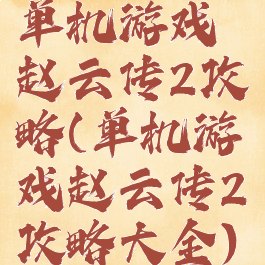 单机游戏
赵云传2攻
略(单机游
戏赵云传2
攻略大全)